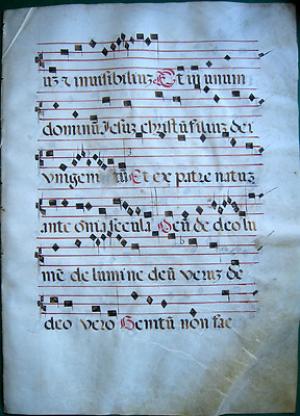 uz & inuisibiliuz Et in unum
dominū Jesuz christū filiuz dei
vnigenitū Et ex patre natuz
ante oīnia secula Deū de deo lu
mē de lumine deū veruz de
deo vero Genitū non fac